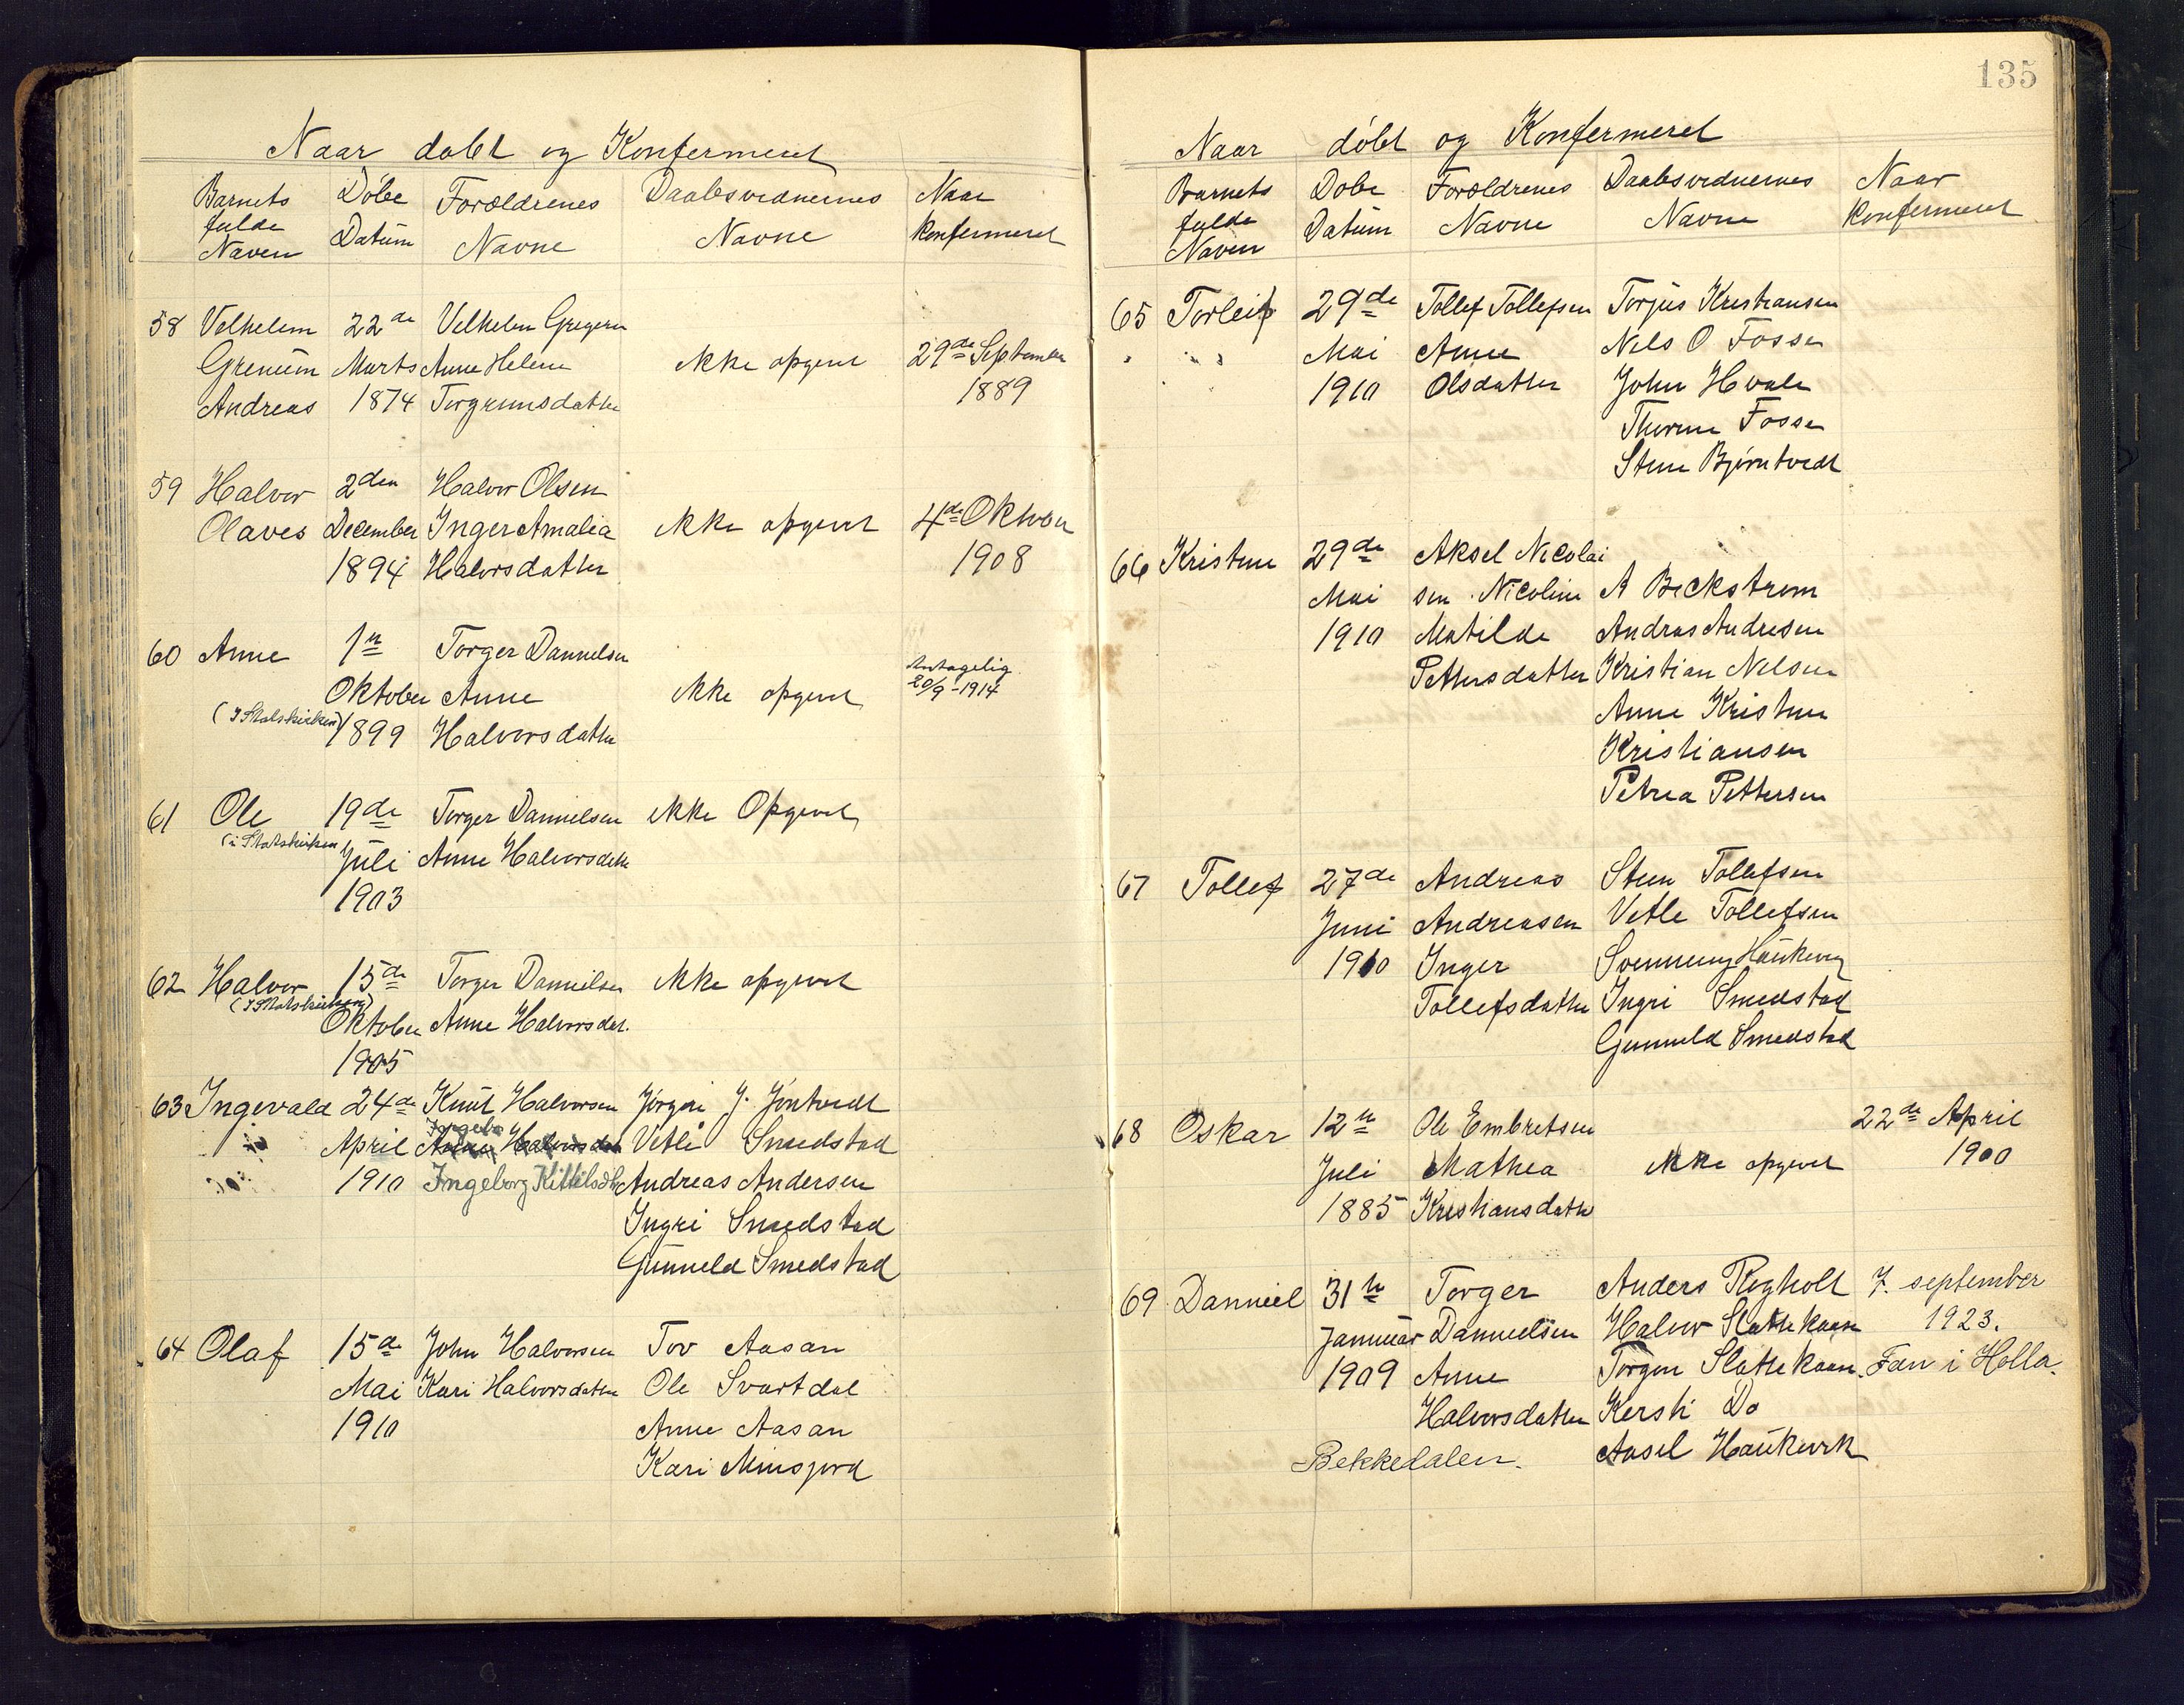 Naar døbt og Konfermeret
Barnets fulde Naven | Døbe Datum | Forældrenes Navne | Daabsvednernes Navne | Naar Konfermeret
58 Velhelem 22de Velhelm Gregersen
Grenum Marts Anne Helene Ikke opgivet 29de September
Andreas 1874 1889
59 Halvor 2den Halvor Olsen
Olaves December Inger Amalia Ikke opgivet 4de Oktober
1894 Halvorsdatter 1908
60 Anne 1ste Torger Dannielsen Antagelig
Oktober Anne Ikke opgivet 20/9-1914
(I Statskirken) 1899 Halvorsdatter
61 Ole 19de Torger Dannielsen Ikke Opgivet
(i Statskirken) Juli Anne Halvorsdatter
1903
62 Halvor 15de Torger Dannielsen Ikke opgivet
(I Statskirken) Oktober Anne Halvorsdat.
1905
63 Ingevald 24de Knut Halvorsen Jørgen J. Jøntvedt
April Anne Halvorsdat Vetli Smedstad
1910 Ingeborg Kittilsdtr Andreas Andersen
Ingri Smedstad
Gunneld Smedstad
64 Olaf 15de John Halvorsen Tov Aasan
Mai Kari Halvorsdatter Ole Svartdal
1910 Anne Aasan
Kari
135
Naar døbt og Konfermeret
Barnets fulde Naven | Døbe Datum | Forældrenes Navne | Daabsvednernes Navne | Naar Konfermeret
65 Torleif 29de Tollef Tollefsen Torjus Kristiansen
" " " Mai Anne Nels O Fosse
1910 Olsdatter John Hvale
Thorine Fosse
Stine Bjørntvedt
66 Kristine 29de Aksel Nicolai
Mai sen. Nicoline A Beckstrøm
1910 Matilde Andras Andresen
Pettersdatter Kristian Nelsen
Anne Kristine
Kristiansen
Petrea Pettersen
67 Tollef 27de Andreas Steen Tollefsen
Juni Andreasen Vetle Tollefsen
1910 Inger Svennung
Tollefsdatter Ingri Smedstad
Gunneld Smedstad
68 Oskar 12te Ole Embretsen 22de April
Juli Mathea Ikke opgivet 1900
1885 Kristiansdatter
69 Danniel 31te Torger Anders Rogholt 7. september
Januar Dannielsen Halvor Slattekaase 1923.
1909 Anne Torgen Slattekaase. Fen i Holla.
Halvorsdatter Kersti Do
Bekkedalen. Aasel Haukverk